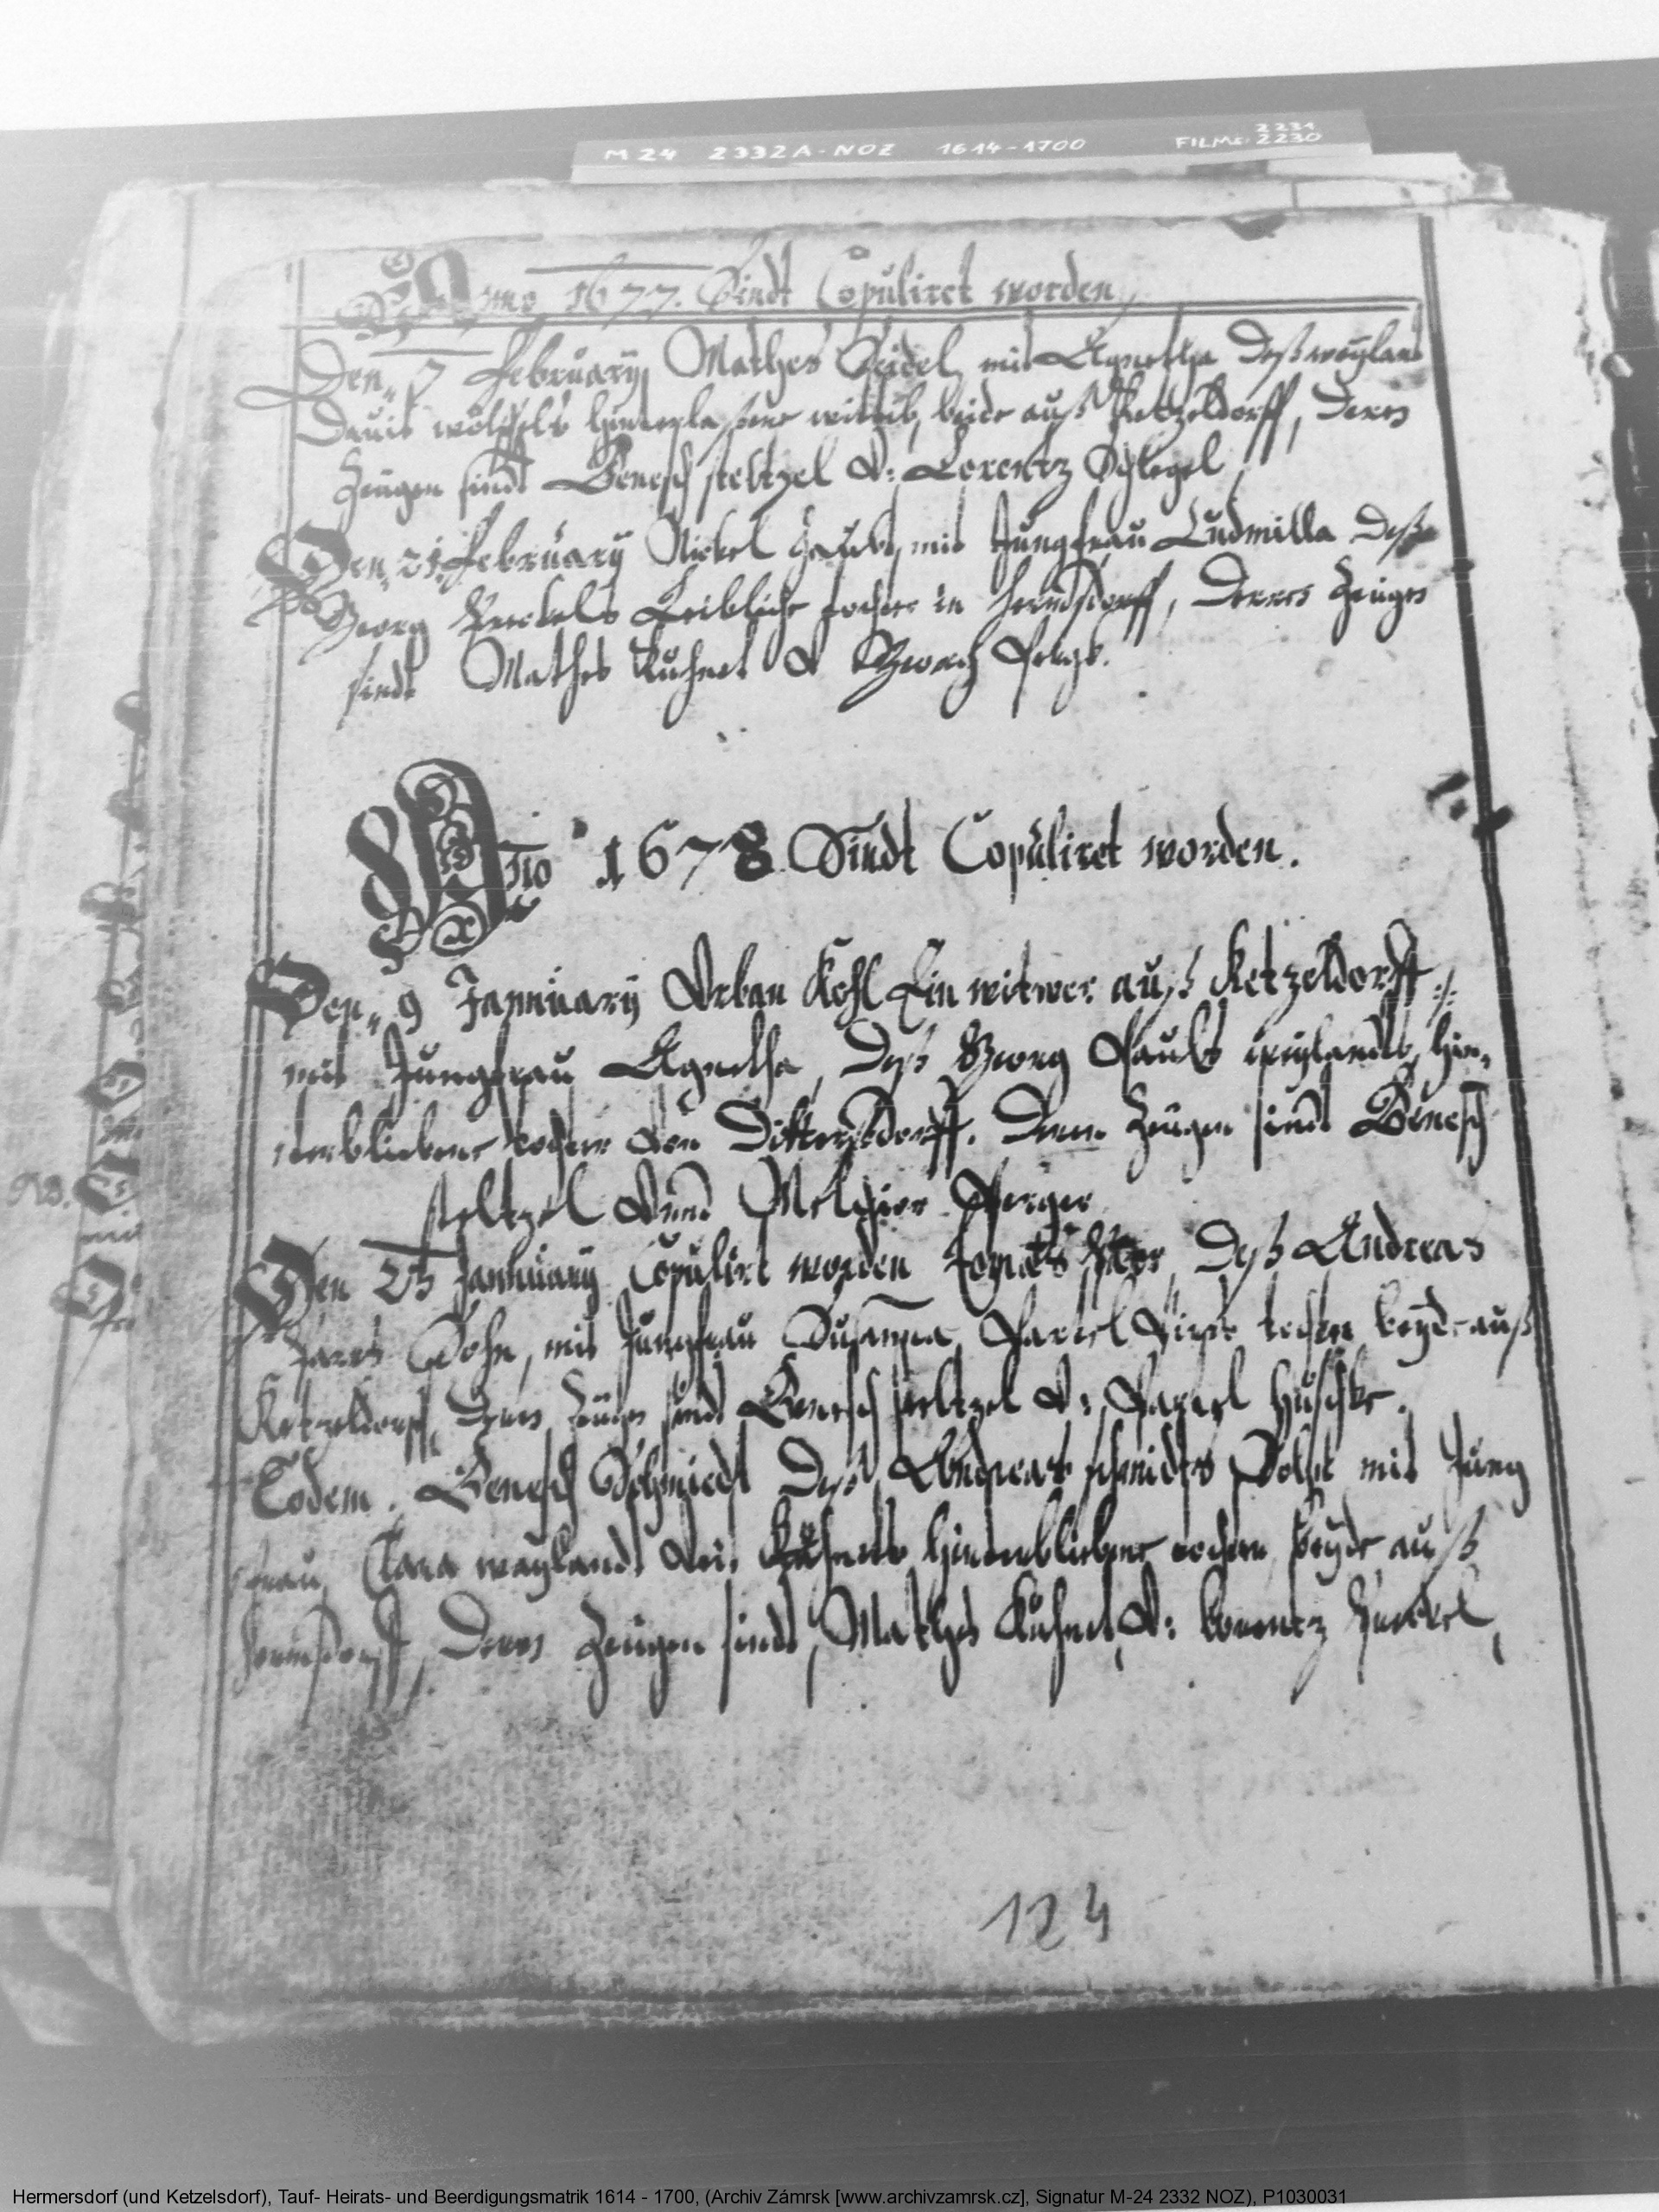 M 24 2332A-NOZ 1614-1700 FILM: 2231 2230
Anno 1677. Sindt Copuliret worden,
Den 7 February Mathes Seidel, mit Agnetha deß weylandt
Davit hinterlaßene wittib, beide auß Ketzeldorff, deres
Zeugen sindt Benesch steltzel V: Lorentz Schlegel
Den 21. February Nickel mit Jungfrau Ludmilla deß
Georg Leibliche tochter in Hermsdorff, deres Zeuges
sindt Mathes Kuhnel V
Anno 1678 Sindt Copuliret worden.
Den 9 Jannuary Urban Kohl Ein witwer auß Ketzeldorff
mit Jungfrau Agnetha, deß Georg Pauls weylandts, hin
terbliebene tochter Von Dittersdorff. deren Zeugen sindt Benesch
steltzel Vnd Melchior Perger
Den 25 Jannuary Copulirt worden deß Andreas
Sohn, mit Jungfrau Susanna, tochter beyde auß
Ketzeldorff, deres Zeuges sindt Benesch steltzel V: Huschke.
Eodem. Benesch Schmiedt deß Andreas schmidts Sohn mit Jung
frau, Clara weylandt hinterbliebene tochter, beyde auß
Hermsdorff, deres Zeugen sindt, Mathes Kuhnel, V: Lorentz
NB.
124
Hermersdorf (und Ketzelsdorf), Tauf- Heirats- und Beerdigungsmatrik 1614 - 1700, (Archiv Zámrsk [www.archivzamrsk.cz], Signatur M-24 2332 NOZ), P1030031